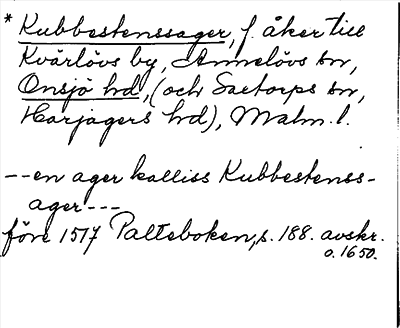 * Kubbestenssager, f. åker till
Kvärlövs by, Annelövs sn,
Onsjö hd, (och Saxtorps sn,
Harjagers hd), Malm. l.
--en ager kalliss Kubbestenss-
ager---
före 1517 Palteboken, s. 188. avskr.
o. 1650.